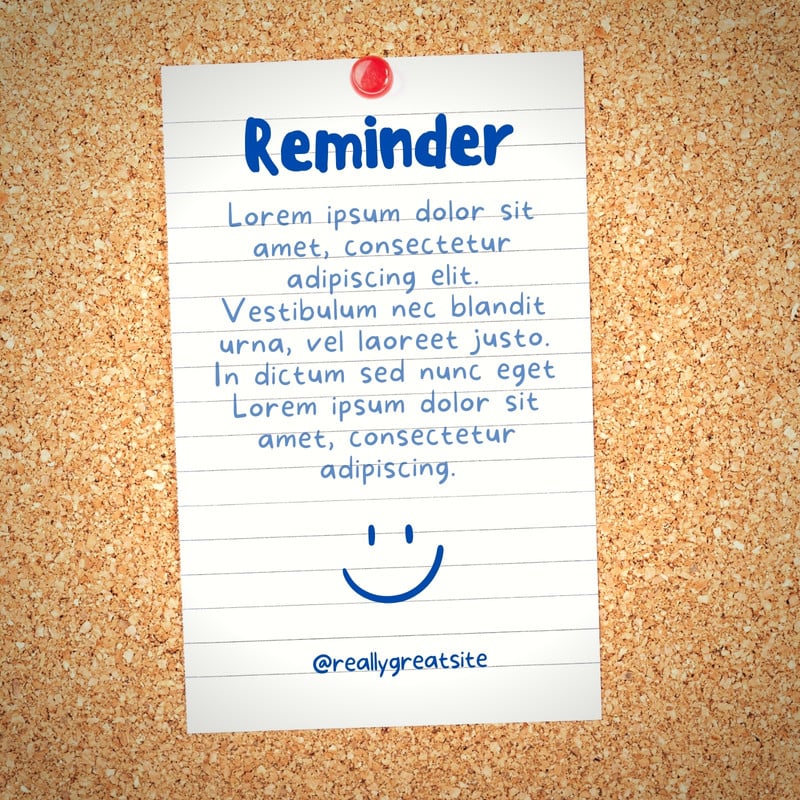 Reminder
Lorem ipsum dolor sit
amet, consectetur
adipiscing elit.
Vestibulum nec blandit
urna, vel laoreet justo.
In dictum sed nunc eget
Lorem ipsum dolor sit
amet, consectetur
adipiscing.
@reallygreatsite